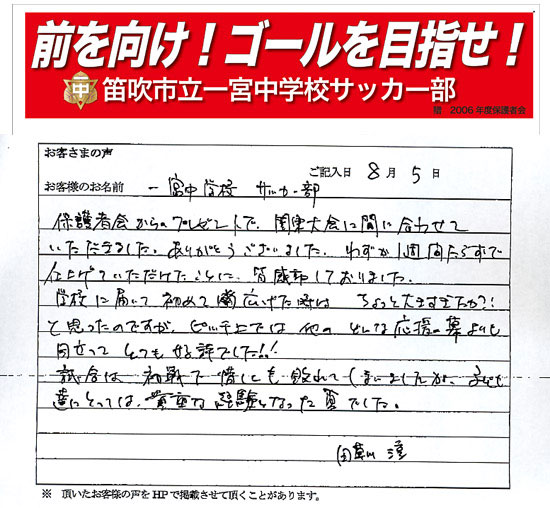 前を向け！ゴールを目指せ！
中
笛吹市立一宮中学校サッカー部
贈 2006年度保護者会
お客さまの声
ご記入日 8月5日
お客様のお名前 一宮中学校 サッカー部
保護者会からのプレゼントで、関東大会に間に合わせて
いただきました。ありがとうございました。わずか1週間たらずで
仕上げていただけたことに、皆感謝しておりました。
学校に届いて初めて広げた時は ちょっと大きすぎたか？！
と思ったのですが、ピッチ上では他のどんな応援の幕よりも
目立って とても好評でした!!
試合は 初戦で惜しくも敗れてしまいましたが、子ども
達にとっては、貴重な経験となった夏でした。
※ 頂いたお客様の声をHPで掲載させて頂くことがあります。